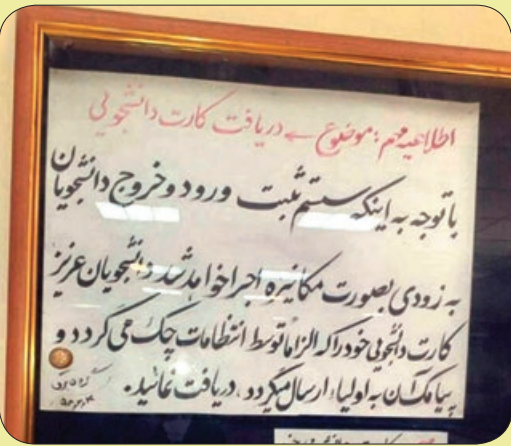 اطلاعیه مهم: موضوع ← دریافت کارت دانشجویی
با توجه به اینکه سیستم ثبت ورود و خروج دانشجویان
به زودی بصورت مکانیزه اجرا خواهد شد دانشجویان عزیز
کارت دانشجویی خود را که الزاماً توسط انتظامات چک می گردد و
پیامک آن به اولیاء ارسال میگردد، دریافت نمائید.